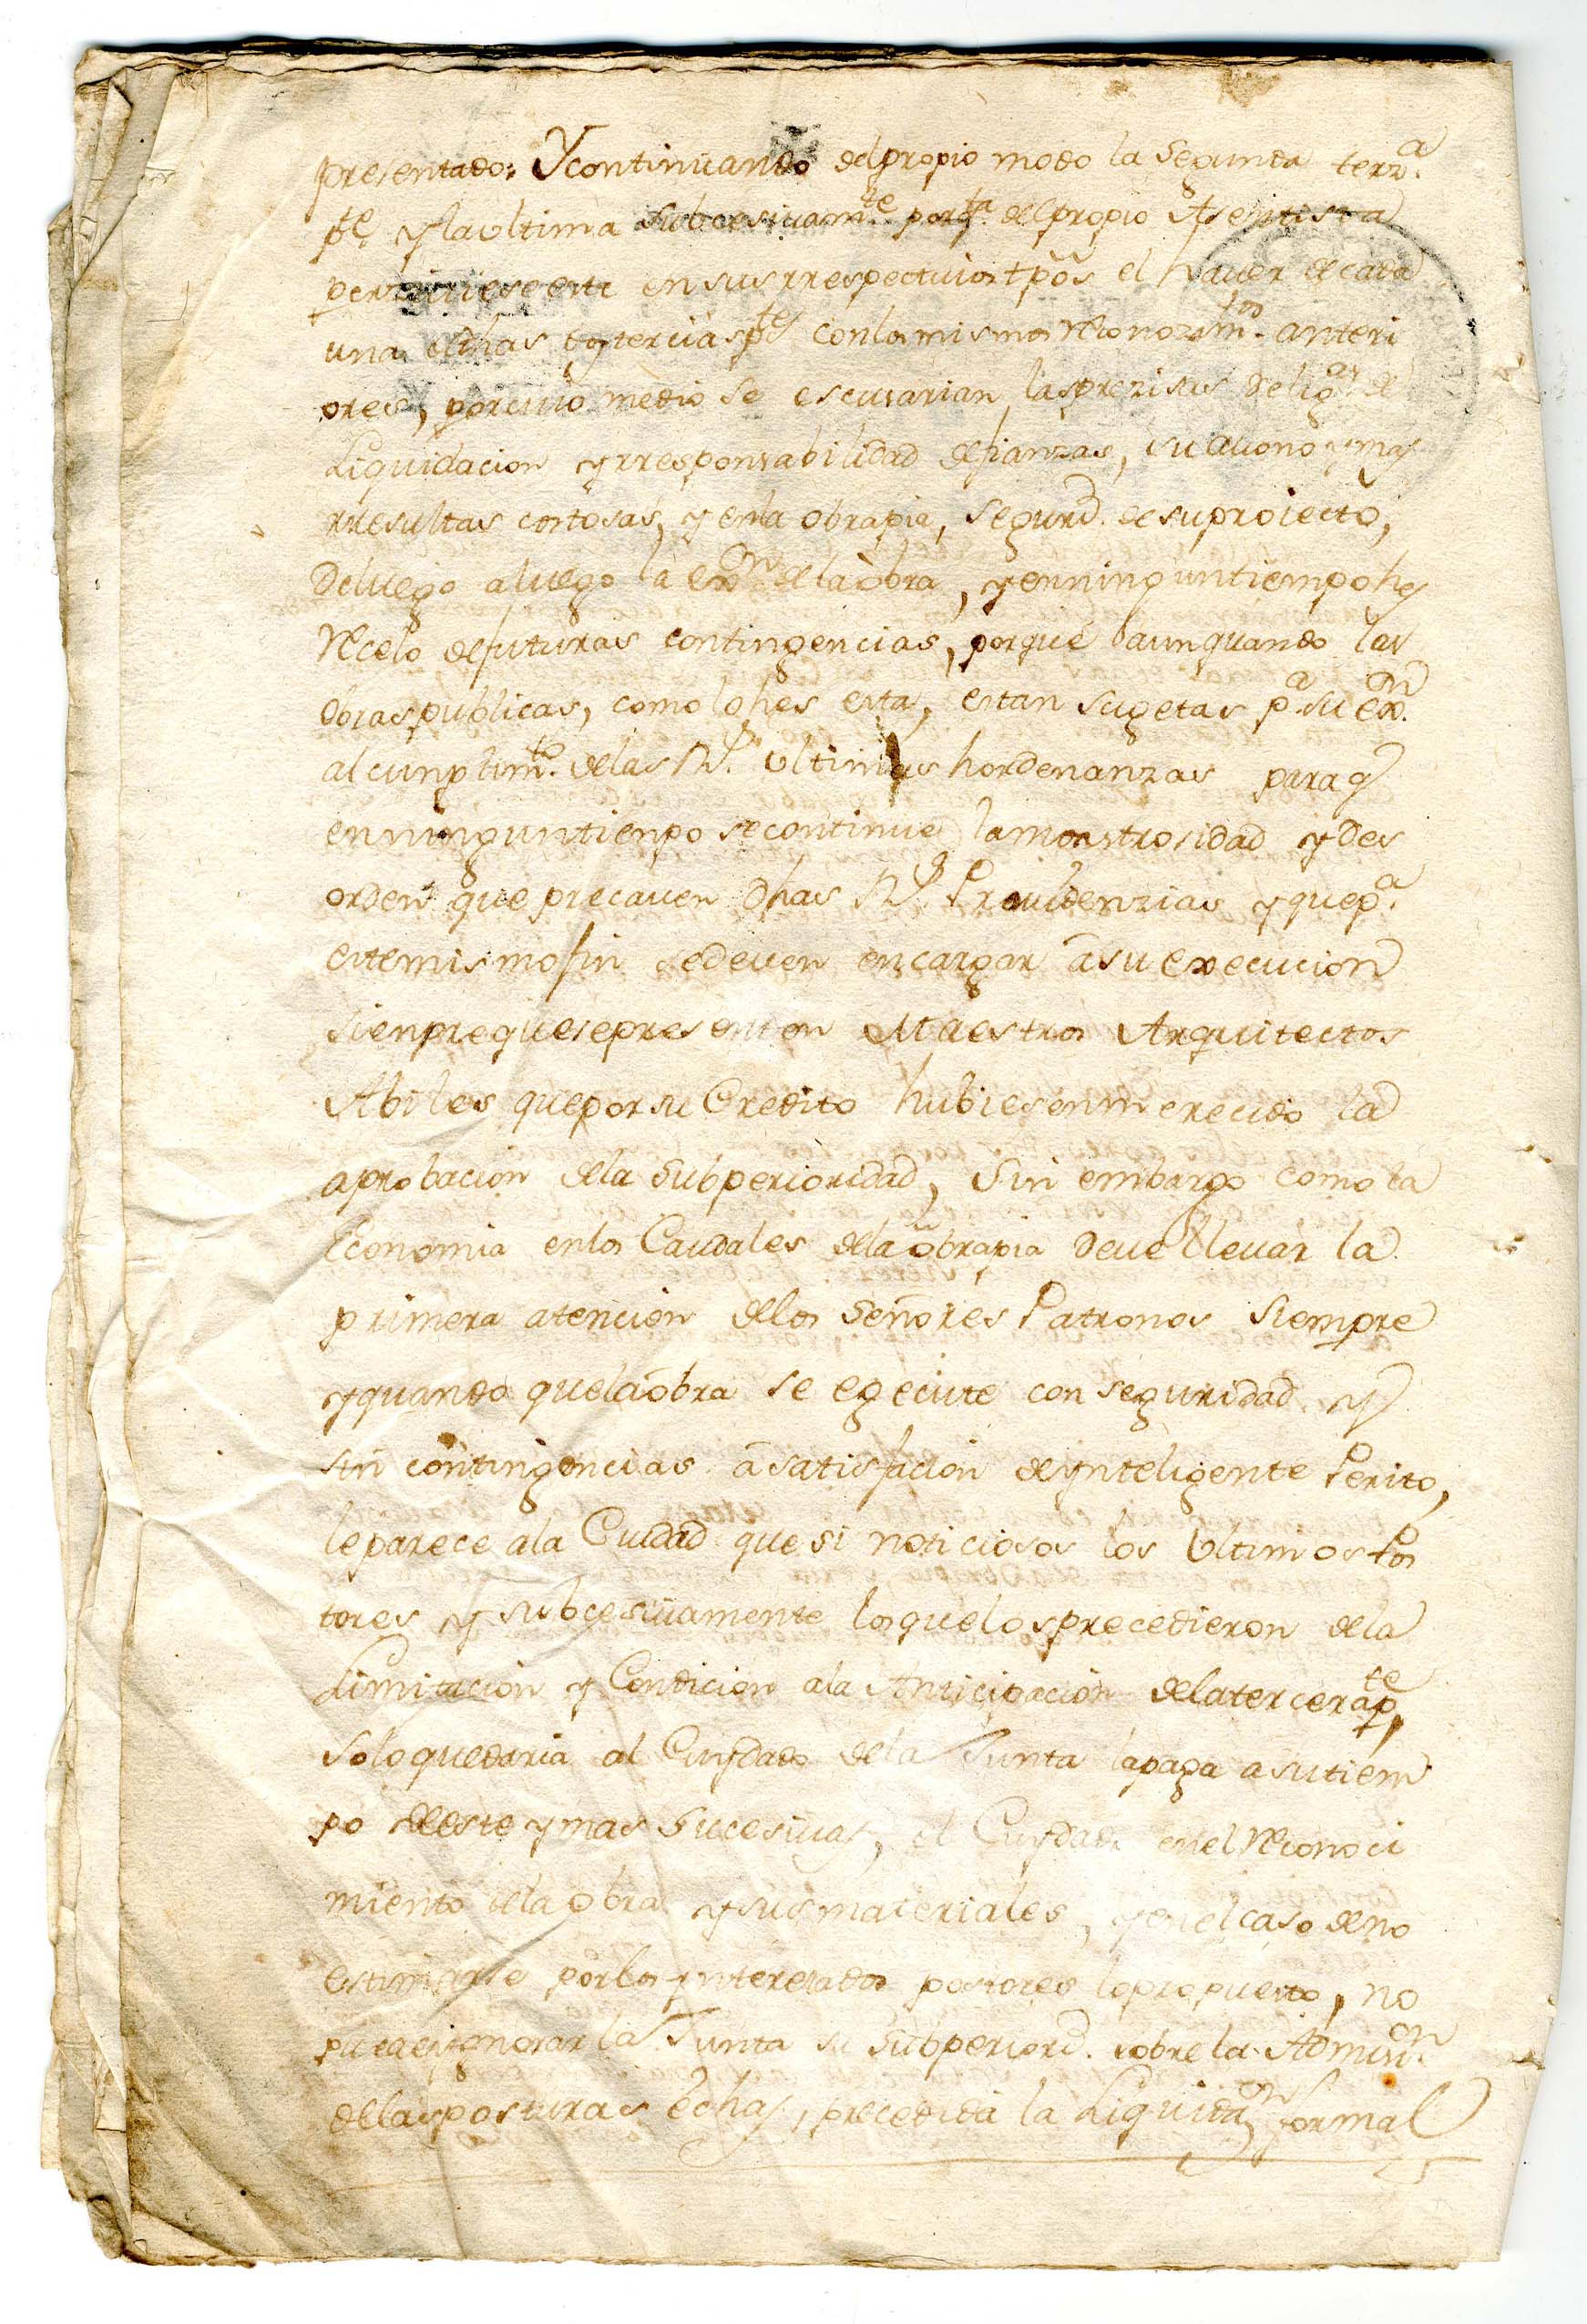 presentado: Y continuando del propio modo la Segunda terz.ª
pte. y la ultima subcesivamte. por qta. del propio Asentista
perziviese este en sus rrespectivos tpõs el haver de cada
una de dhas terzias ptes con los mismos Reconozimtos. anteri
ores, por cuio medio se escusarian las prezisas delig.as de
Liquidacion y rresponsabilidad de fianzas, su abono y mas
rresultas costosas, y en la obrapia, segurd. de su proiecto,
Deluego aluego la exon. de la obra, y en ningun tiempo hes
Recelo de futuras contingencias, porque aunquando las
obras publicas, como lo hes esta, estan sugetas pª su exon.
al cunplimto. de las Rs. ultimas hordenanzas para q
en ningun tienpo se continue la monstrosidad y des
orden que precaven dhas Rs. Providenzias y que pª.
este mismo fin se deven encargar â su execucion
sienpre que se presenten Maestros Arquitectos
Abiles que por su Credito hubiesen merecido la
aprobacion de la Subperioridad, sin embargo como la
Economia en los Caudales de la obrapia deve llevar la
primera atencion de los Señores Patronos siempre
y quando que la obra se egecute con seguridad y
sin contingencias â satisfacion de ynteligente Perito,
le parece a la Ciudad que si noticiosos los ultimos Pos
tores y subcesivamente los que los precedieron de la
Limitacion y Condicion a la Anticipacion de la tercera pte,
solo quedaria al Cuydado de la Junta la paga a su tiem
po de este y mas sucesivas, el Cuydado en el Reconoci
miento de la obra y sus materiales, y en el caso de no
estimarse por los ynteresados postores lo propuesto, no
puede ygnorar la Junta su Subperiord. sobre la Admision.
de las posturas echas, precedida la Liquidaon formal